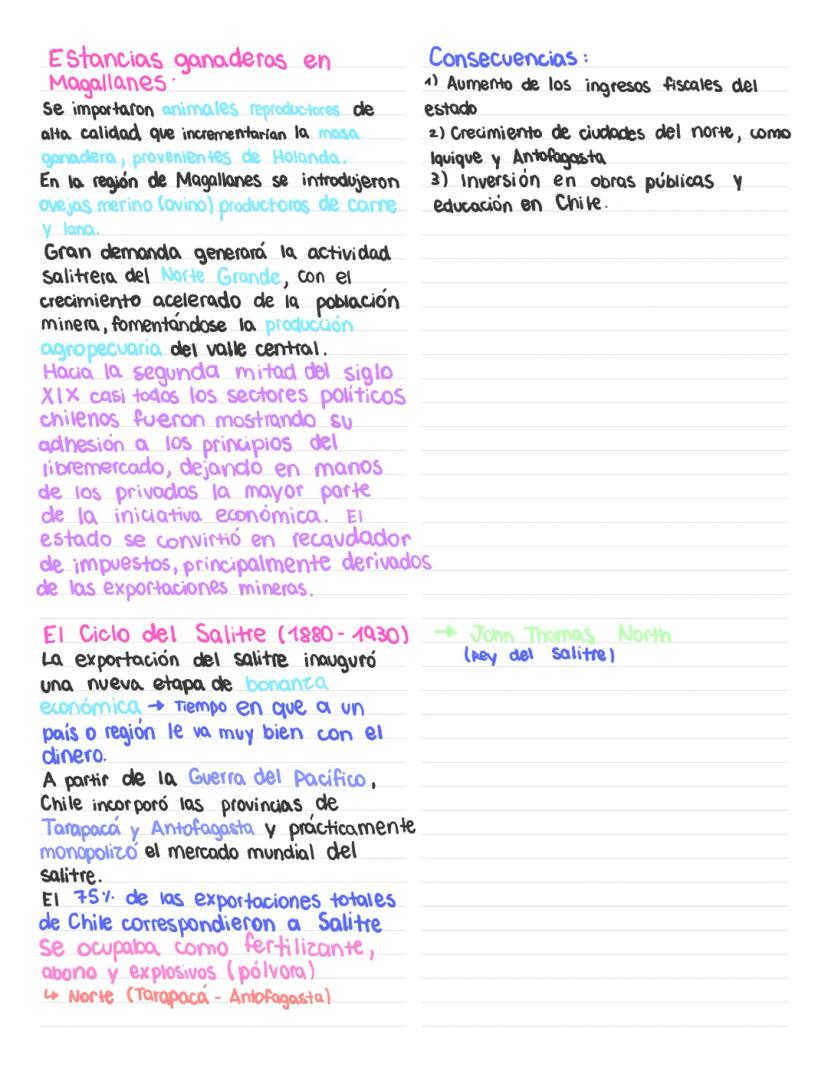 Estancias ganaderas en
Magallanes.
Se importaron animales reproductores de
alta calidad que incrementarían la masa
ganadera, provenientes de Holanda.
En la región de Magallanes se introdujeron
ovejas merino (ovino) productoras de carne
y lana.
Gran demanda generará la actividad
salitrera del Norte Grande, con el
crecimiento acelerado de la población
minera, fomentándose la producción
agropecuaria del valle central.
Hacia la segunda mitad del siglo
XIX casi todos los sectores políticos
chilenos fueron mostrando su
adhesión a los principios del
libremercado, dejando en manos
de los privados la mayor parte
de la iniciativa económica. El
estado se convirtió en recaudador
de impuestos, principalmente derivados
de las exportaciones mineras.
El Ciclo del Salitre (1880 - 1930)
La exportación del salitre inauguró
una nueva etapa de bonanza
económica → Tiempo en que a un
país o región le va muy bien con el
dinero.
A partir de la Guerra del Pacífico,
Chile incorporó las provincias de
Tarapacá y Antofagasta y prácticamente
monopolizó el mercado mundial del
salitre.
El 75% de las exportaciones totales
de Chile correspondieron a Salitre
Se ocupaba como fertilizante,
abono y explosivos (pólvora)
↳ Norte (Tarapacá - Antofagasta)
Consecuencias:
1) Aumento de los ingresos fiscales del
estado
2) Crecimiento de ciudades del norte, como
Iquique y Antofagasta
3) Inversión en obras públicas y
educación en Chile.
→ John Thomas North
(Rey del salitre)